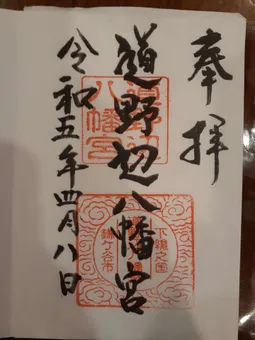 奉拝
道野辺八幡宮
令和五年四月八日
八幡宮
下総之国
鎌ケ谷市